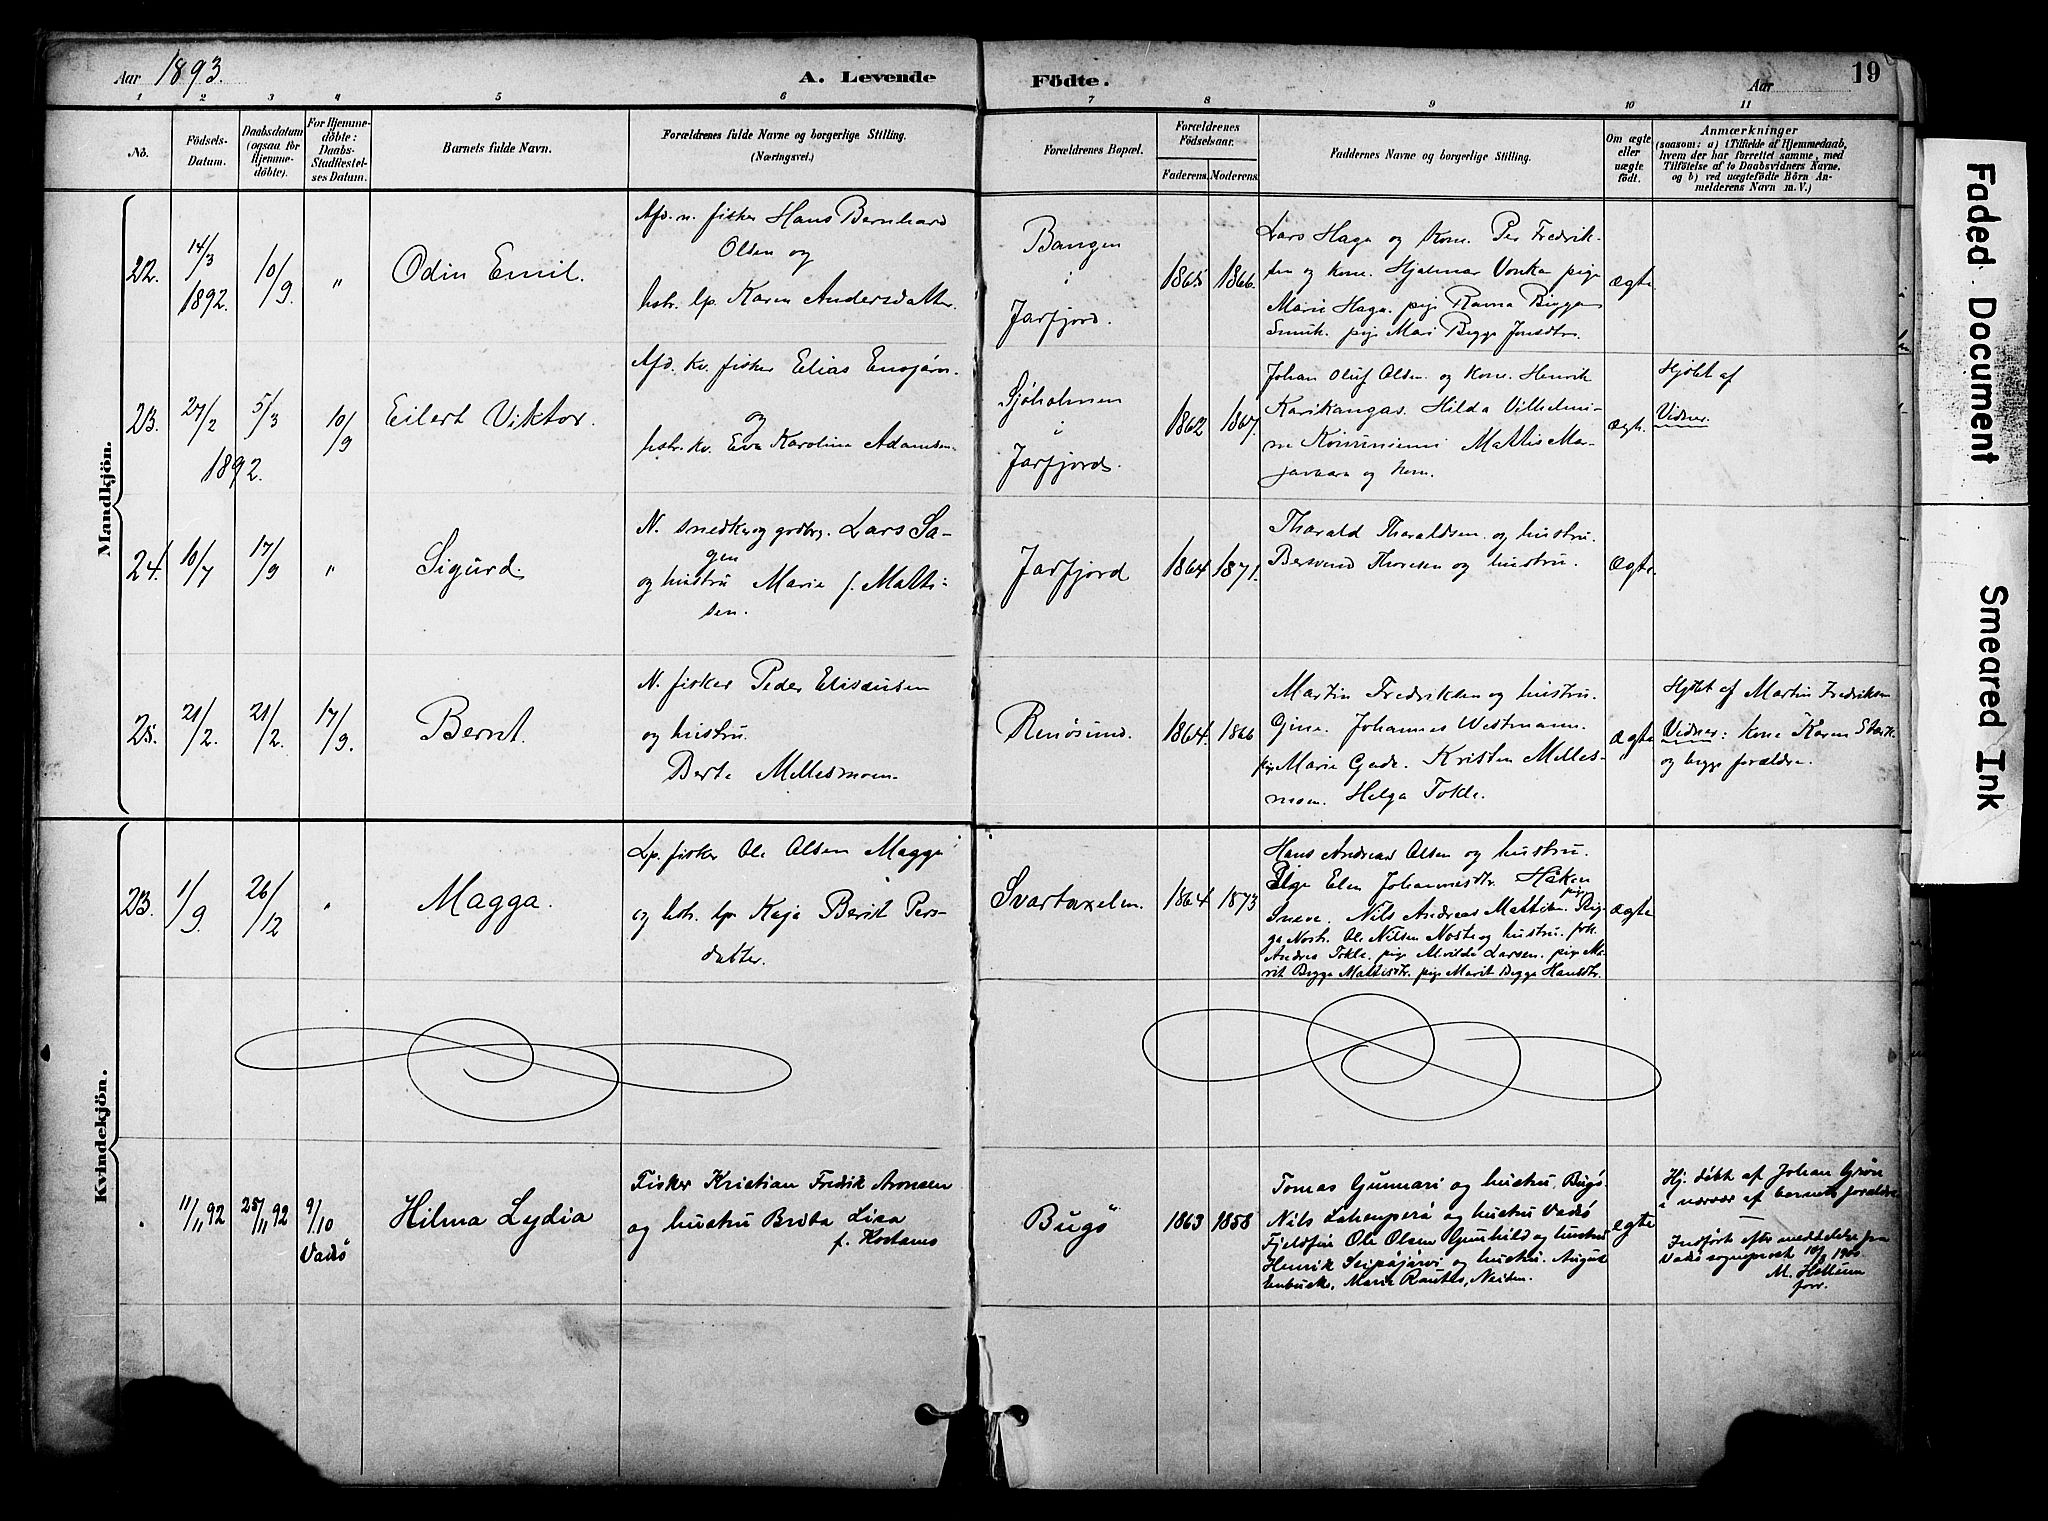 Aar 1893.
A. Levende
Födte.
Aar
19
1
2
3
4
5
6
7
8
9
10
11
No.
Födsels-
Datum.
Daabsdatum
(ogsaa for
Hjemme-
döbte).
For Hjemme-
döbte:
Daabs-
Stadfæstel-
ses Datum.
Barnets fulde Navn.
Forældrenes fulde Navne og borgerlige Stilling.
(Næringsvei.)
Forældrenes Bopæl.
Forældrenes
Födselsaar.
Faderens.
Moderens.
Faddernes Navne og borgerlige Stilling.
Om ægte
eller
uægte
födt.
Anmærkninger
(saasom: a) i Tilfælde af Hjemmedaab,
hvem der har forrettet samme, med
Tilföielse af to Daabsvidners Navne,
og b) ved uægtefödte Börn An-
melderens Navn m. V.)
Mandkjön.
22.
14/3
1892.
10/9.
"
Odin Emil.
Afd. n. fisker Hans Bernhard
Olsen og
hstr. lp. Karen Andersdatter.
Bangen
i
Jarfjord.
1865
1866.
Lars Haga og kone. Per Fredrik-
sen og kone. Hjalmar Vonka pige
Marie Haga. pige
pige Mari Bigge Jonsdtr.
ægte
23.
27/2
5/3
1892.
10/9
Eilert Viktor.
Afd. kv. fisker Elias
og
hstr. kv. Eva Karolina Adamsen
Sjöholmen
i
Jarfjord.
1862
1867.
Johan Oluf Olsen og kone. Henrik
Karikangas. Hilda Vilhelmi-
ne Mattis
og kone.
ægte.
Hjdbt af
Vidner.
24.
10/7
17/9
"
Sigurd.
N. snedker og grdbr. Lars Sa-
gen
og hustru Marie f. Matti-
sen.
Jarfjord
1864
1871.
Tharald Tharaldsen og hustru.
Bersvend Thoresen og hustru.
ægte.
25.
21/2.
21/2.
17/9.
Bernt.
N. fisker Peder Elisæusen
og hustru.
Berte Mellesmoen.
Renösund.
1864.
1866
Martin Fredriksen og hustru.
Gine. Johannes Westmann.
pige Marie Gade. Kristen Melles-
moen. Helga Tokle.
ægte
Hjdbt af Martin Fredriksen
Vidner: kone Karen
og begge forældre.
Kvindekjön.
23.
1/9.
26/12
"
Magga.
Lp. fisker Ole Olsen Magga
og hstr. lp. Kaja Berit Pers-
datter.
Svartaxelen.
1864
1873
Hans Andreas Olsen og hustru.
Pige Elen Johannesdtr. Håken
Sneve. Nils Andreas Mattisen. pige Rig-
ga Noste. Ole Nilsen Noste og hustru.
Andrea Tokle. pige Alvilde Larsen. pige Ma-
rit Bigge Mattisdtr. pige Marit Bigge Hansdtr.
ægte
11/11 92
25/11 92
9/10
Vadsö
Hilma Lydia
Fisker Kristian Fredrik Aronsen
og hustru Brita Lisa
f. Kostamo
Bugö
1863
1858
Tomas Gunnari og hustru Bugö.
Nils og hustru Vadsö
Ole Olsen Gunhild og hustru
Henrik Seipäjärvi og hustru. August
Enbuske, Marie Rautio, Neiden.
ægte
Hj. döbt af Johan Grön
i nærvær af barnets forældre
Indfört efter meddelelse fra
Vadsö sogneprest 10/8 1900.
M. Hallum
forr.
Faded Document
Smeared Ink